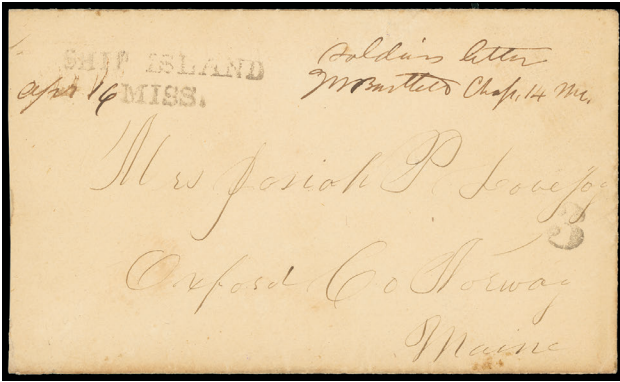 SHIP ISLAND
MISS.
apr 16
Soldiers letter
JM Bartlett Chap. 14 Me.
Mrs Josiah P Lovejoy
3
Oxford Co Norway
Maine